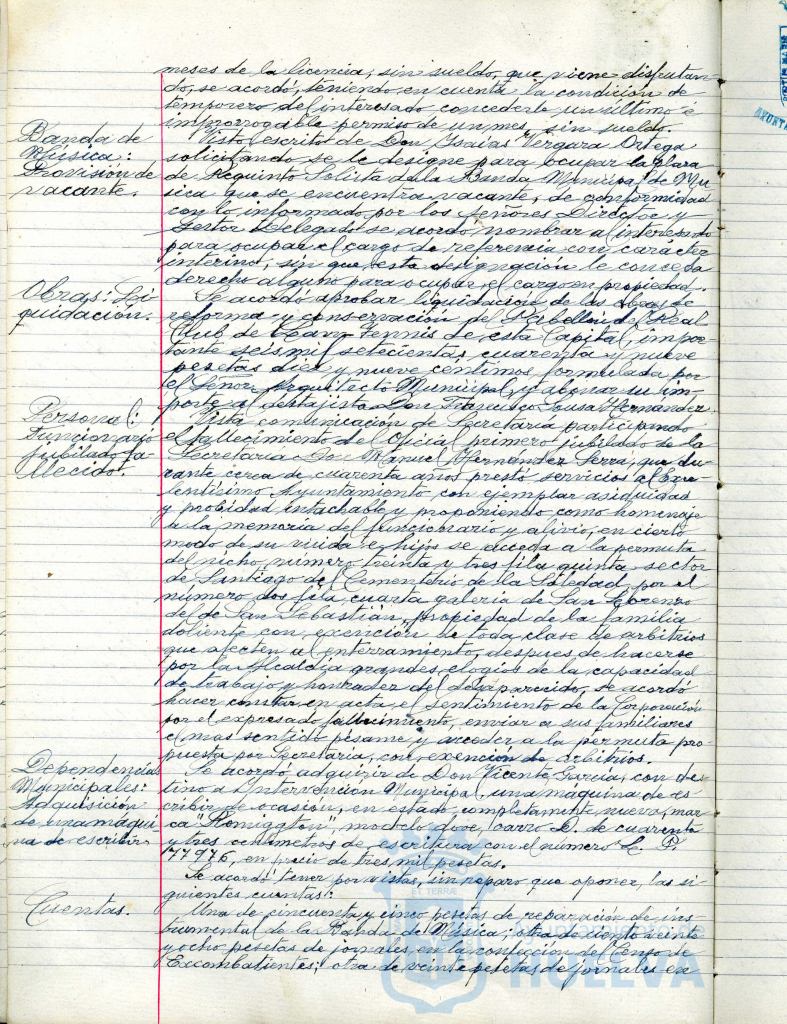 meses de la licencia, sin sueldo, que viene disfrutan-
do, se acordó, teniendo en cuenta la condición de
temporero del interesado concederle un último é
improrrogable permiso de un mes, sin sueldo.
Banda de
Música:
Provisión de
vacante.
Visto escrito de Don Isaias Vergara Ortega
solicitando se le designe para ocupar la plaza
de Requinto Solista de la Banda Municipal de Mu-
sica que se encuentra vacante, de conformidad
con lo informado por los Señores Director y
Gestor Delegado se acordó nombrar al interesado
para ocupar el cargo de referencia con carácter
interino, sin que esta designación le conceda
derecho alguno para ocupar el cargo en propiedad.
Obras: Li-
quidación.
Se acordó aprobar liquidación de las obras de
reforma y conservación del Pabellón del Real
Club de Lawn Tennis de esta Capital, impor-
tante seis mil setecientas cuarenta y nueve
pesetas diez y nueve centimos formulada por
el Señor Arquitecto Municipal y abonar su im-
porte al destajista Don Francisco Sousa Hernandez.
Personal:
Funcionario
jubilado fa-
llecido.
Vista comunicación de Secretaría participando
el fallecimiento del Oficial primero jubilado de la
Secretaría Don Manuel Hernández Serra, que du-
rante cerca de cuarenta años prestó servicios al Exce-
lentísimo Ayuntamiento, con ejemplar asiduidad
y probidad intachable y proponiendo como homenaje
a la memoria del funcionario y alivio, en cierto
modo de su viuda e hijos se acceda a la permuta
del nicho, número treinta y tres fila quinta sector
de Santiago del Cementerio de la Soledad, por el
número dos fila cuarta galeria de San Lorenzo
del de San Sebastián, propiedad de la familia
doliente con exención de toda clase de arbitrios
que afecten al enterramiento, despues de hacerse
por la Alcaldía grandes elogios de la capacidad
de trabajo y honradez del desaparecido, se acordó
hacer constar en acta el sentimiento de la Corporación
por el expresado fallecimiento, enviar a sus familiares
el mas sentido pésame y acceder a la permuta pro-
puesta por Secretaría, con exención de arbitrios.
Dependencias
Municipales:
Adquisición
de una maqui-
na de escribir.
Se acordó adquirir de Don Vicente García, con des-
tino a Intervención Municipal una máquina de es-
cribir de ocasión, en estado completamente nuevo, mar-
ca "Remiggton", modelo doce, carro D. de cuarenta
y tres centímetros de escritura con el número L. P.
177976, en precio de tres mil pesetas.
Cuentas.
Se acordó tener por vistas, sin reparo que oponer, las si-
guientes cuentas:
Una de cincuenta y cinco pesetas de reparación de ins-
trumental de la Banda de Música; otra de ciento veinte
y ocho pesetas de jornales en la confección del Censo de
Excombatientes; otra de veinte pesetas de jornales en
Ayuntamiento de
HUELVA